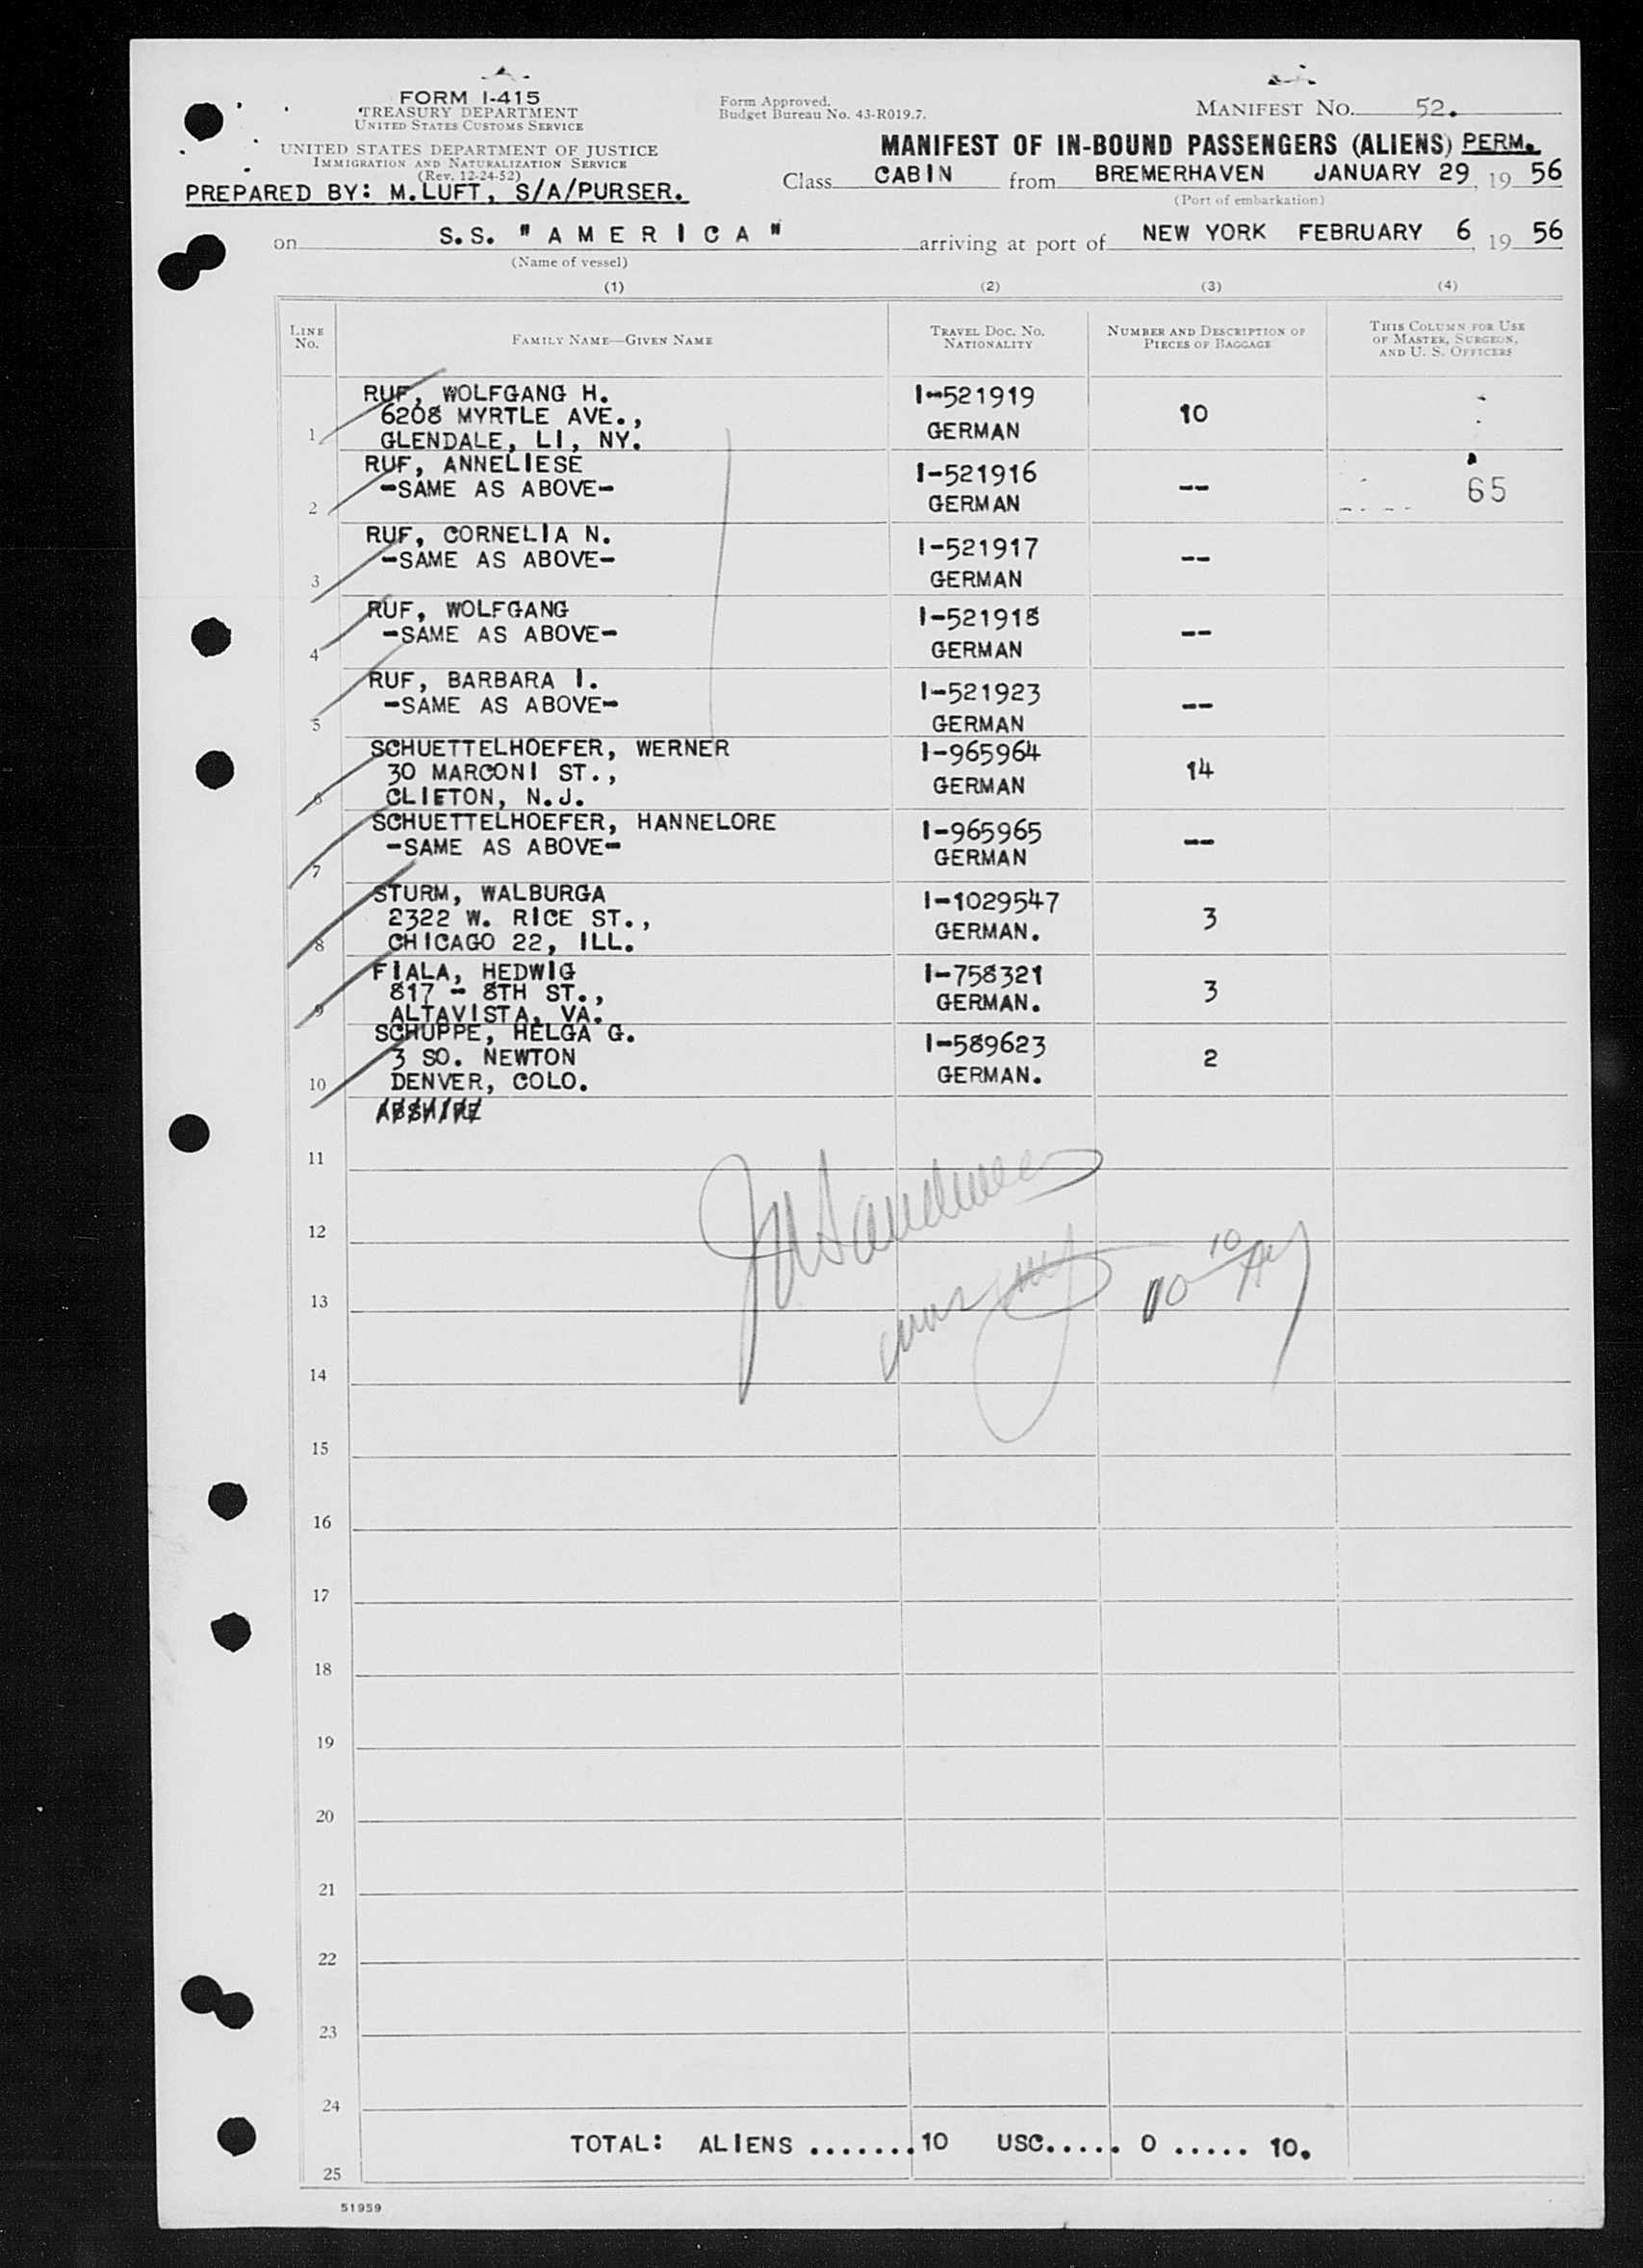 FORM I-415
TREASURY DEPARTMENT
UNITED STATES CUSTOMS SERVICE
UNITED STATES DEPARTMENT OF JUSTICE
IMMIGRATION AND NATURALIZATION SERVICE
(Rev. 12-24-52)
PREPARED BY: M.LUFT, S/A/PURSER.
Form Approved.
Budget Bureau No. 43-R019.7.
MANIFEST NO. 52.
MANIFEST OF IN-BOUND PASSENGERS (ALIENS) PERM.
Class CABIN from BREMERHAVEN JANUARY 29, 19 56
(Port of embarkation)
on S.S. "AMERICA" arriving at port of NEW YORK FEBRUARY 6, 19 56
(Name of vessel)
(1) (2) (3) (4)
LINE NO. FAMILY NAME—GIVEN NAME TRAVEL DOC. NO. NATIONALITY NUMBER AND DESCRIPTION OF PIECES OF BAGGAGE THIS COLUMN FOR USE OF MASTER, SURGEON, AND U. S. OFFICERS
RUF, WOLFGANG H. I-521919
6208 MYRTLE AVE., 10
1 GLENDALE, LI, NY. GERMAN
RUF, ANNELIESE I-521916
-SAME AS ABOVE- -- 65
2 GERMAN
RUF, CORNELIA N. I-521917
-SAME AS ABOVE- --
3 GERMAN
RUF, WOLFGANG I-521918
-SAME AS ABOVE- --
4 GERMAN
RUF, BARBARA I. I-521923
-SAME AS ABOVE- --
5 GERMAN
SCHUETTELHOEFER, WERNER I-965964
30 MARCONI ST., 14
6 CLIFTON, N.J. GERMAN
SCHUETTELHOEFER, HANNELORE I-965965
-SAME AS ABOVE- --
7 GERMAN
STURM, WALBURGA I-1029547
2322 W. RICE ST., 3
8 CHICAGO 22, ILL. GERMAN.
FIALA, HEDWIG I-758321
817 - 8TH ST., 3
9 ALTAVISTA, VA. GERMAN.
SCHUPPE, HELGA G. I-589623
3 SO. NEWTON 2
10 DENVER, COLO. GERMAN.
11
12
13
14
15
16
17
18
19
20
21
22
23
24
TOTAL: ALIENS .......10 USC..... 0 ..... 10.
25
51959